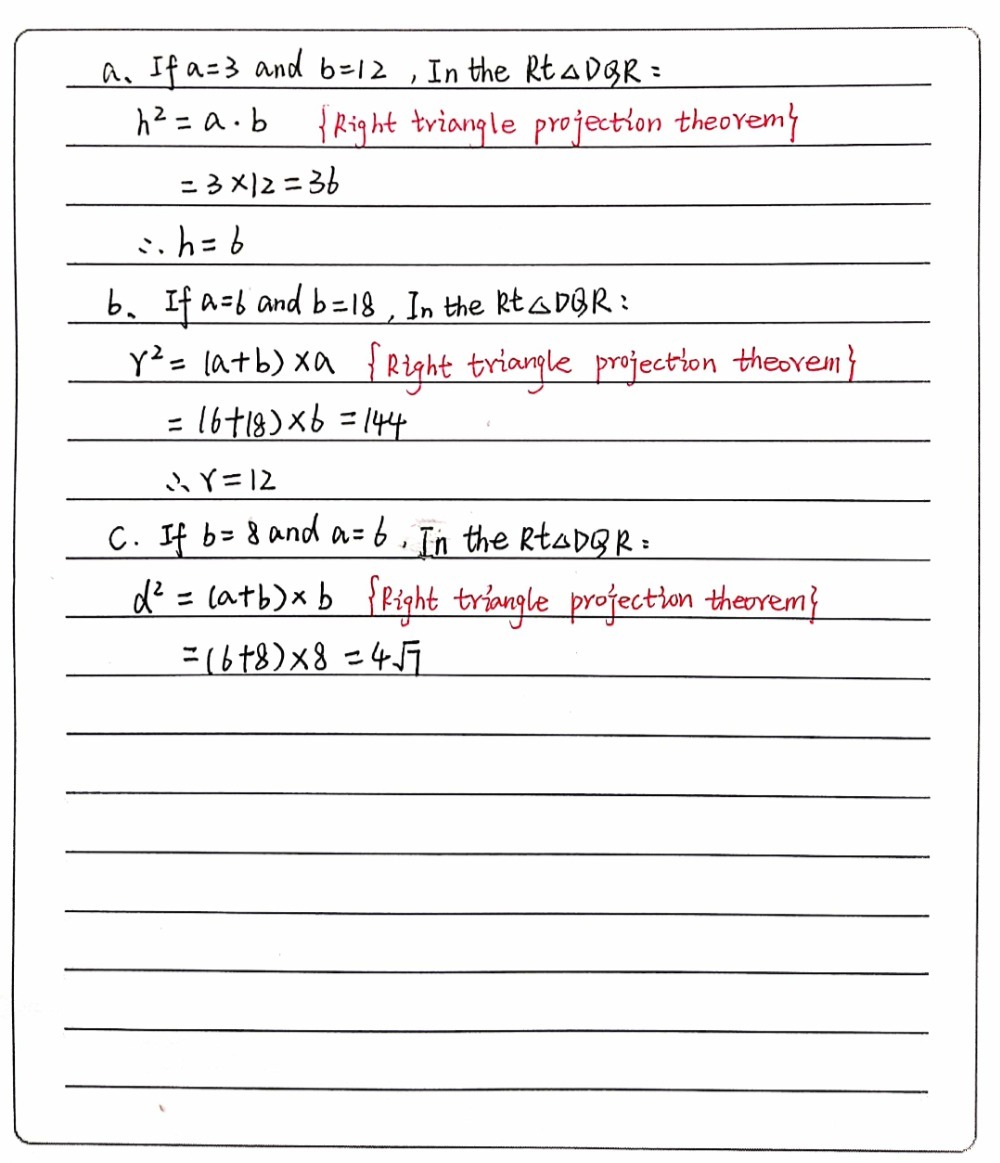 a、If a=3 and b=12 , In the Rt△DQR:
h² = a · b {Right triangle projection theorem}
= 3×12 = 36
∴ h = 6
b、If a=6 and b=18 , In the Rt△DQR:
r² = (a+b)×a {Right triangle projection theorem}
= (6+18)×6 = 144
∴ r = 12
C. If b= 8 and a= 6 , In the Rt△DQR:
d² = (a+b)× b {Right triangle projection theorem}
= (6+8)×8 = 4√7